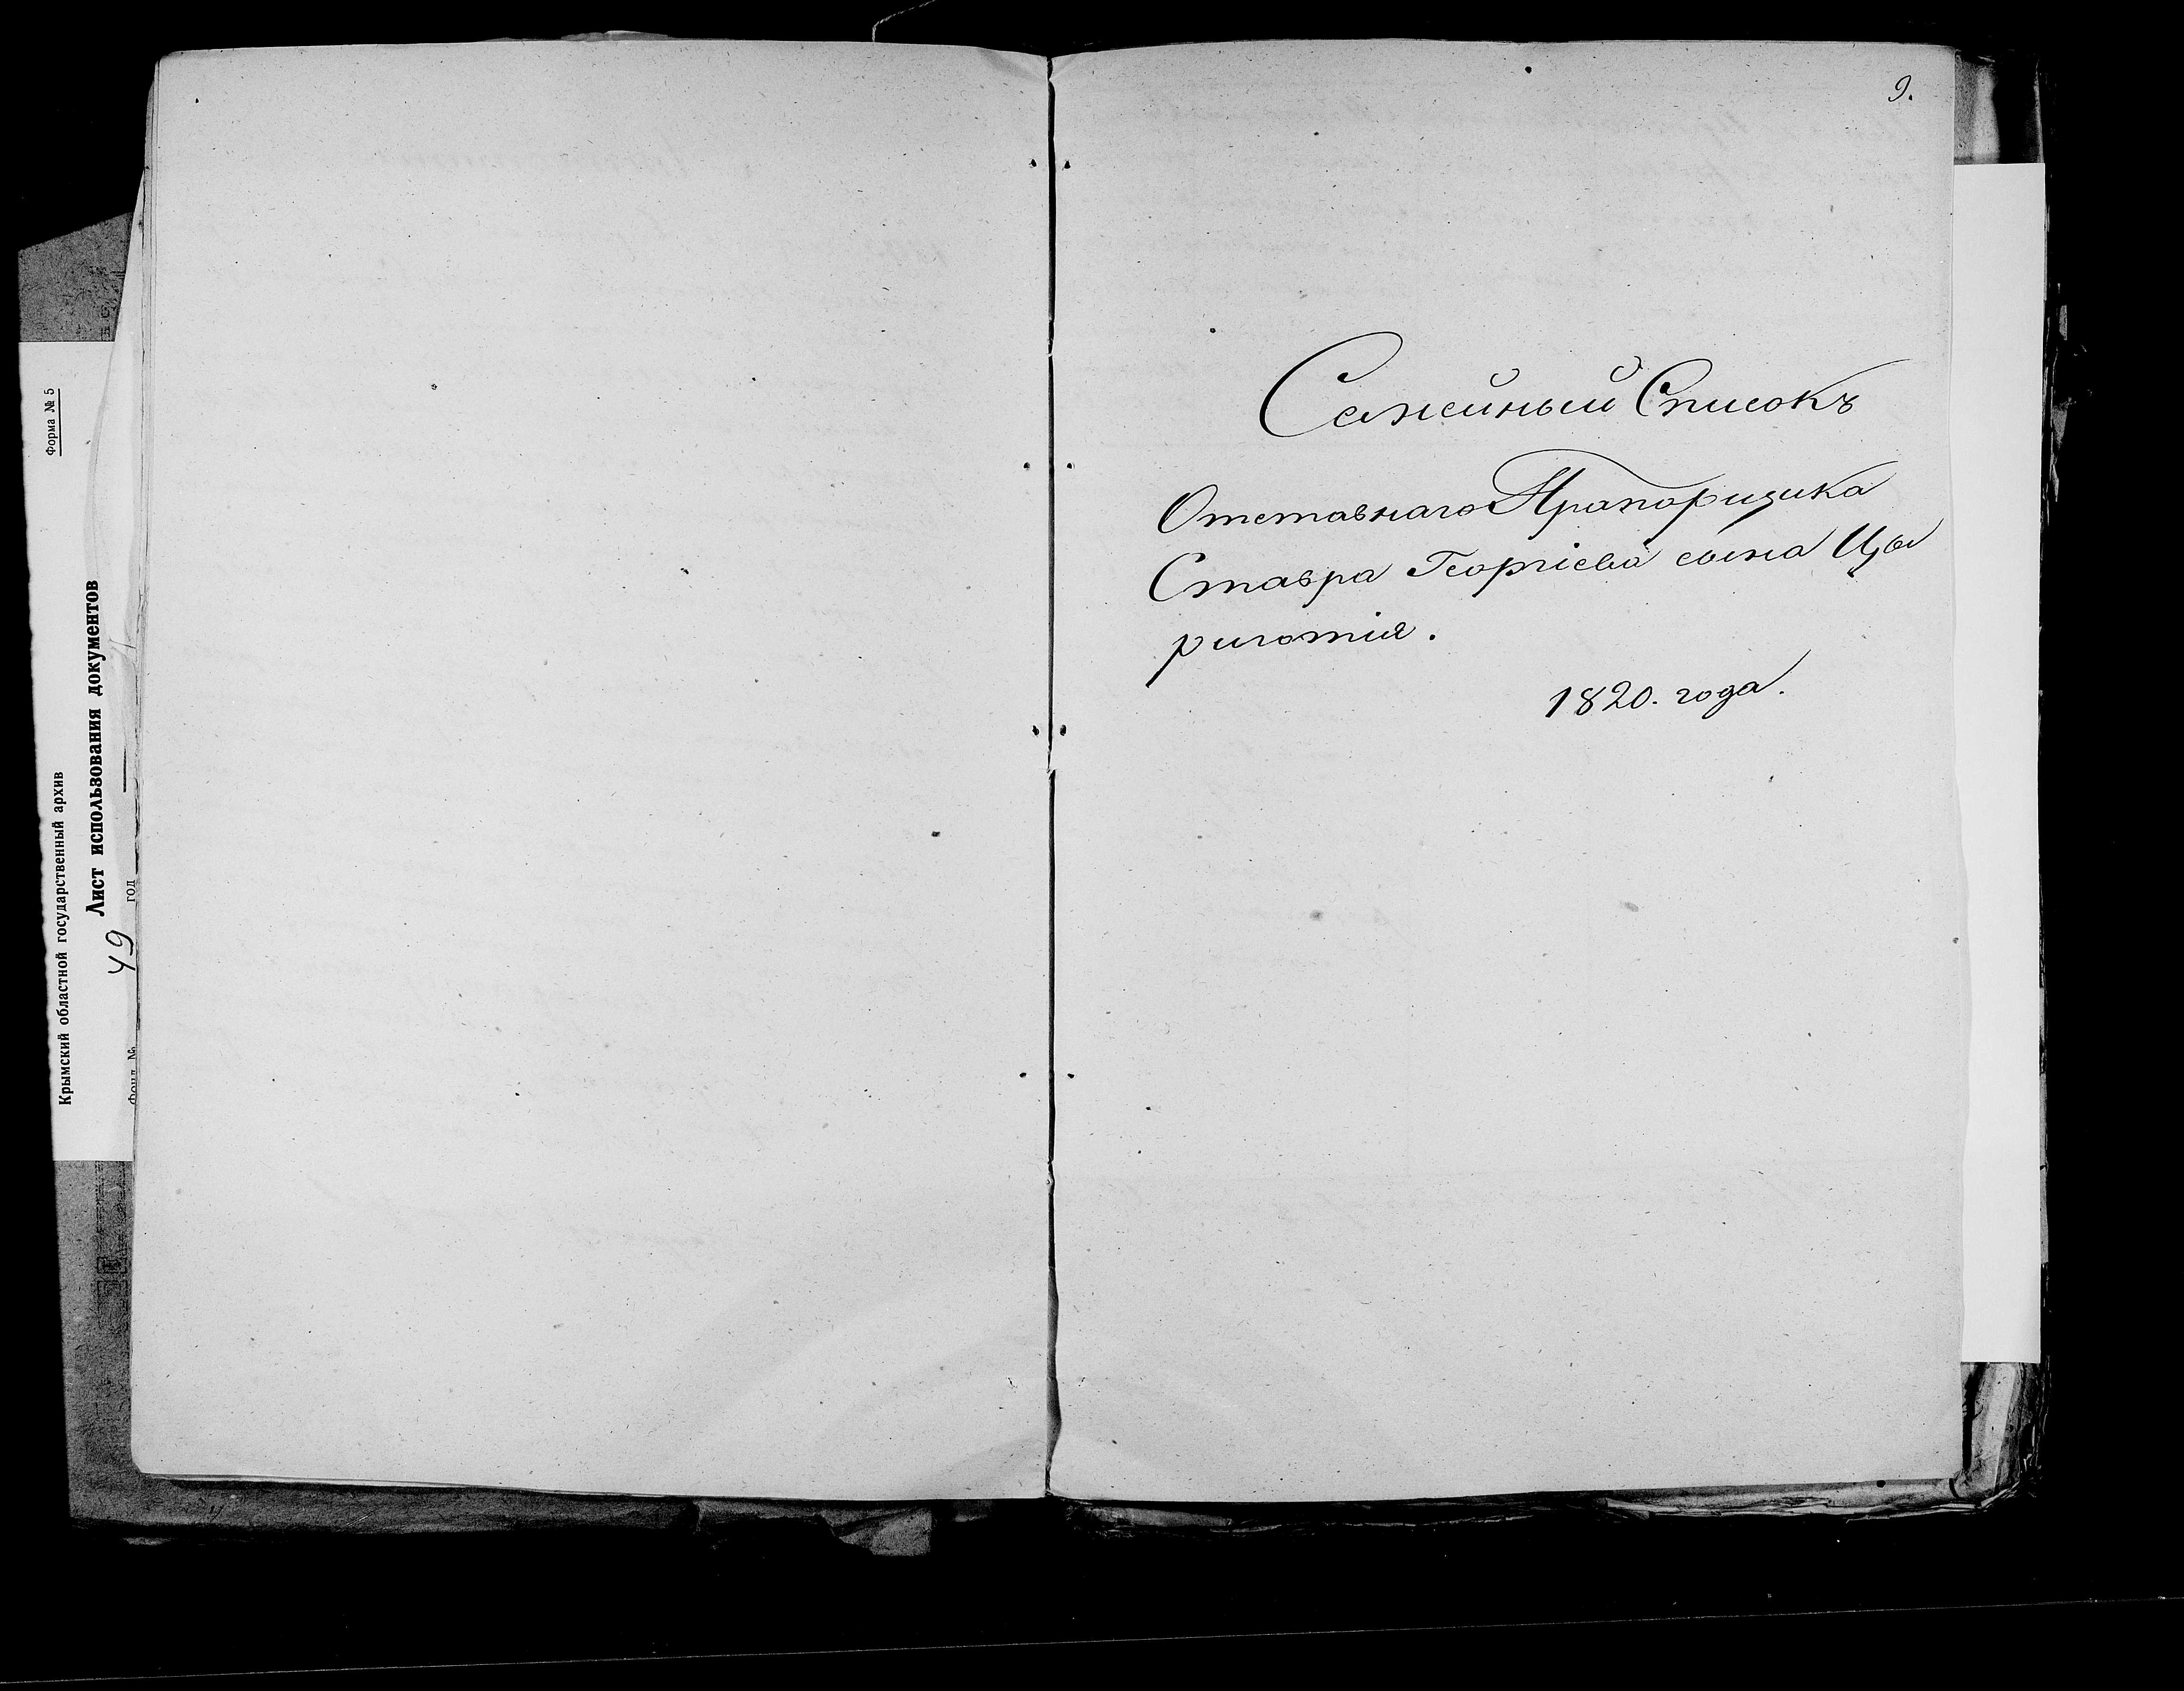 9.
Семейный Списокъ
Отставнаго Прапорщика
Ставра Георгіева сына Цы
риготія.
1820. года.
Форма № 5
Крымский областной государственный архив
Лист использования документов
49 год
Фонд №